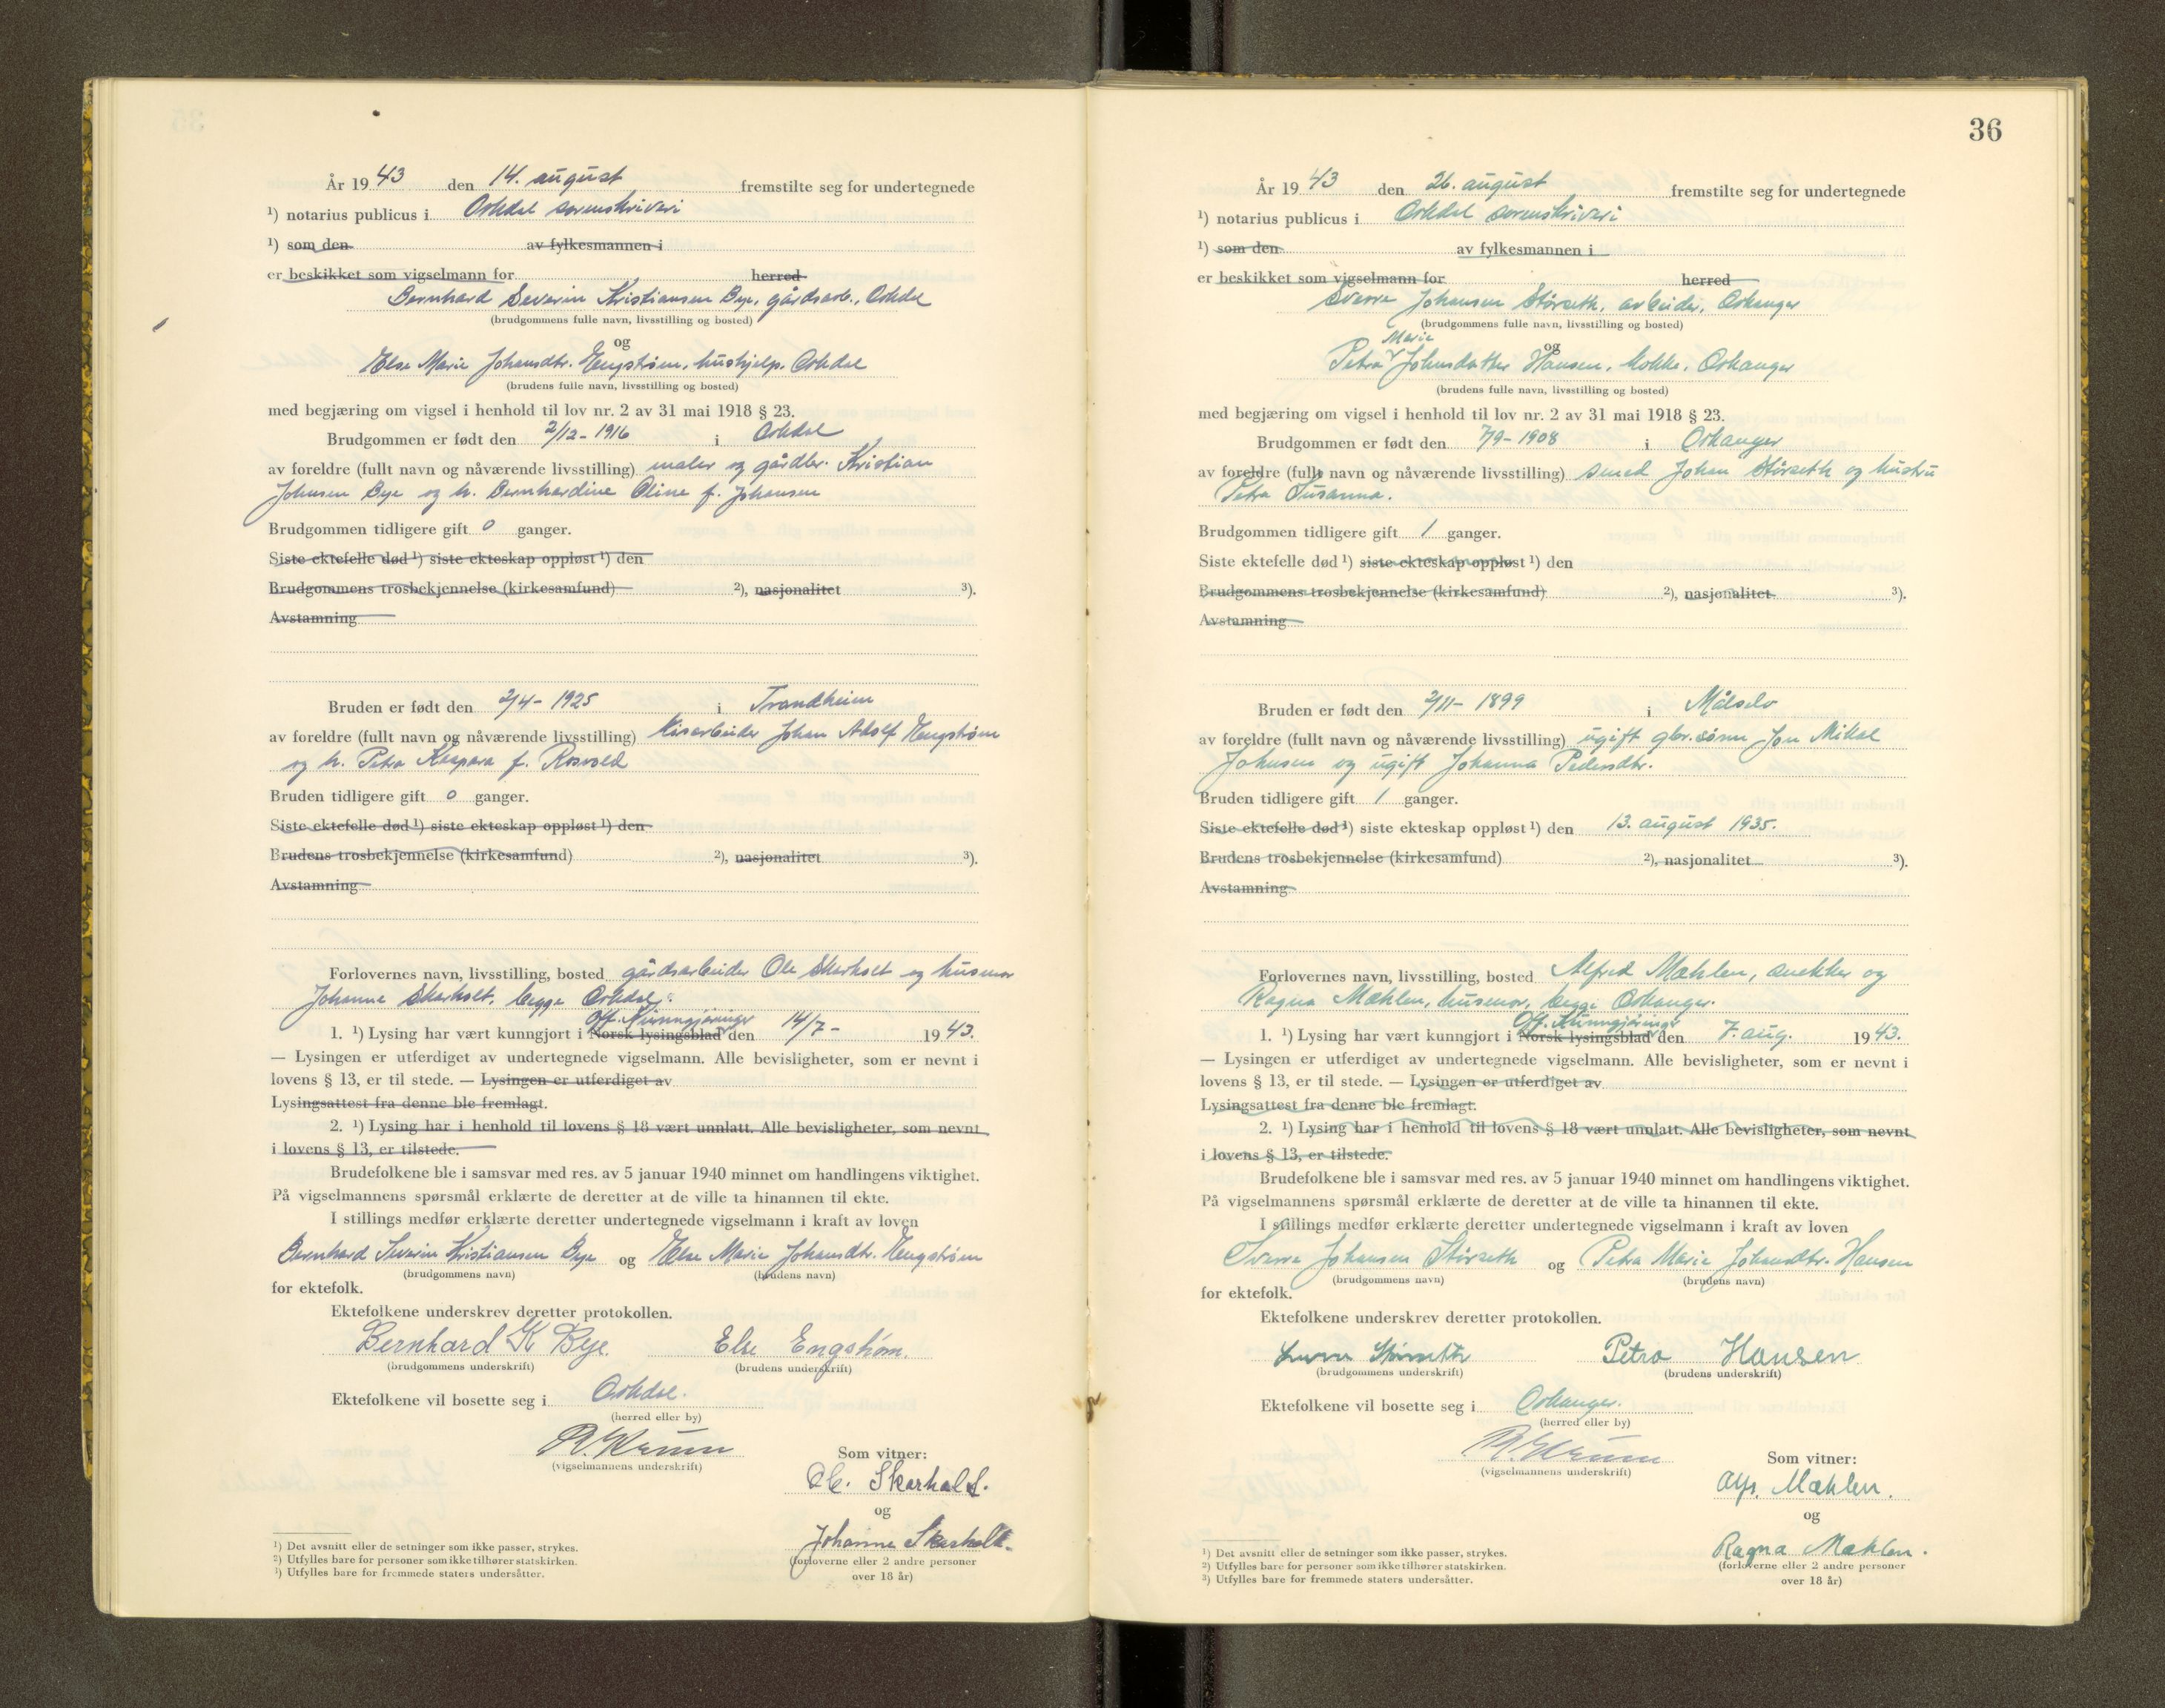 År 19 43 den 14. august fremstilte seg for undertegnede
1) notarius publicus i Orkdal sorenskriveri
1) som den av fylkesmannen i
er beskikket som vigselmann for herred
Bernhard Severin Kristiansen Bye, gårdsarb., Orkdal
(brudgommens fulle navn, livsstilling og bosted)
og
Else Marie Johansdtr. Engstrøm, hushjelp, Orkdal
(brudens fulle navn, livsstilling og bosted)
med begjæring om vigsel i henhold til lov nr. 2 av 31 mai 1918 § 23.
Brudgommen er født den 2/12-1916 i Orkdal
av foreldre (fullt navn og nåværende livsstilling) maler og gårdbr. Kristian
Johnsen Bye og h. Bernhardine Oline f. Johansen
Brudgommen tidligere gift 0 ganger.
Siste ektefelle død 1) siste ekteskap oppløst 1) den
Brudgommens trosbekjennelse (kirkesamfund) 2), nasjonalitet 3).
Avstamning
Bruden er født den 2/4-1925 i Trondheim
av foreldre (fullt navn og nåværende livsstilling) kisarbeider Johan Adolf Engstrøm
og h. Petra Kaspara f. Rosvold
Bruden tidligere gift 0 ganger.
Siste ektefelle død 1) siste ekteskap oppløst 1) den
Brudens trosbekjennelse (kirkesamfund) 2), nasjonalitet 3).
Avstamning
Forlovernes navn, livsstilling, bosted gårdsarbeider Ole Skarholt og husmor
Johanne Skarholt, begge Orkdal.
Off. Kunngjøringer
1. 1) Lysing har vært kunngjort i Norsk lysingsblad den 14/7- 19 43.
— Lysingen er utferdiget av undertegnede vigselmann. Alle bevisligheter, som er nevnt i
lovens § 13, er til stede. — Lysingen er utferdiget av
Lysingsattest fra denne ble fremlagt.
2. 1) Lysing har i henhold til lovens § 18 vært unnlatt. Alle bevisligheter, som nevnt
i lovens § 13, er tilstede.
Brudefolkene ble i samsvar med res. av 5 januar 1940 minnet om handlingens viktighet.
På vigselmannens spørsmål erklærte de deretter at de ville ta hinannen til ekte.
I stillings medfør erklærte deretter undertegnede vigselmann i kraft av loven
Bernhard Severin Kristiansen Bye og Else Marie Johansdtr. Engstrøm
(brudgommens navn) (brudens navn)
for ektefolk.
Ektefolkene underskrev deretter protokollen.
Bernhard K Bye. Else Engstrøm.
(brudgommens underskrift) (brudens underskrift)
Ektefolkene vil bosette seg i Orkdal.
(herred eller by)
(vigselmannens underskrift)
Som vitner:
Ole. Skarholt.
og
Johanne Skarholt.
(forloverne eller 2 andre personer
over 18 år)
1) Det avsnitt eller de setninger som ikke passer, strykes.
2) Utfylles bare for personer som ikke tilhører statskirken.
1) Utfylles bare for fremmede staters undersåtter.
36
År 19 43 den 26. august fremstilte seg for undertegnede
1) notarius publicus i Orkdal sorenskriveri
1) som den av fylkesmannen i
er beskikket som vigselmann for herred
Sverre Johansen Størseth, arbeider, Orkanger
(brudgommens fulle navn, livsstilling og bosted)
og
Marie
Petra Johnsdatter Hansen, kokke, Orkanger
(brudens fulle navn, livsstilling og bosted)
med begjæring om vigsel i henhold til lov nr. 2 av 31 mai 1918 § 23.
Brudgommen er født den 7/9-1908 i Orkanger
av foreldre (fullt navn og nåværende livsstilling) smed Johan Størseth og hustru
Petra Susanna.
Brudgommen tidligere gift 1 ganger.
Siste ektefelle død 1) siste ekteskap oppløst 1) den
Brudgommens trosbekjennelse (kirkesamfund) 2), nasjonalitet 3).
Avstamning
Bruden er født den 2/11-1899 i Målselv
av foreldre (fullt navn og nåværende livsstilling) ugift gbr.sønn Jon Mikal
Johnsen og ugift Johanna Pedersdtr.
Bruden tidligere gift 1 ganger.
Siste ektefelle død 1) siste ekteskap oppløst 1) den 13. august 1935.
Brudens trosbekjennelse (kirkesamfund) 2), nasjonalitet 3).
Avstamning
Forlovernes navn, livsstilling, bosted Alfred Mæhlen, snekker og
Ragna Mæhlen, husmor, begge Orkanger.
Off. Kunngjøringer
1. 1) Lysing har vært kunngjort i Norsk lysingsblad den 7. aug. 19 43.
— Lysingen er utferdiget av undertegnede vigselmann. Alle bevisligheter, som er nevnt i
lovens § 13, er til stede. — Lysingen er utferdiget av
Lysingsattest fra denne ble fremlagt.
2. 1) Lysing har i henhold til lovens § 18 vært unnlatt. Alle bevisligheter, som nevnt
i lovens § 13, er tilstede.
Brudefolkene ble i samsvar med res. av 5 januar 1940 minnet om handlingens viktighet.
På vigselmannens spørsmål erklærte de deretter at de ville ta hinannen til ekte.
I stillings medfør erklærte deretter undertegnede vigselmann i kraft av loven
Sverre Johansen Størseth og Petra Marie Johansdtr. Hansen
(brudgommens navn) (brudens navn)
for ektefolk.
Ektefolkene underskrev deretter protokollen.
Sverre Størseth Petra Hansen
(brudgommens underskrift) (brudens underskrift)
Ektefolkene vil bosette seg i Orkanger.
(herred eller by)
(vigselmannens underskrift)
Som vitner:
Alf. Mæhlen.
og
Ragna Mæhlen.
(forloverne eller 2 andre personer
over 18 år)
1) Det avsnitt eller de setninger som ikke passer, strykes.
2) Utfylles bare for personer som ikke tilhører statskirken.
3) Utfylles bare for fremmede staters undersåtter.